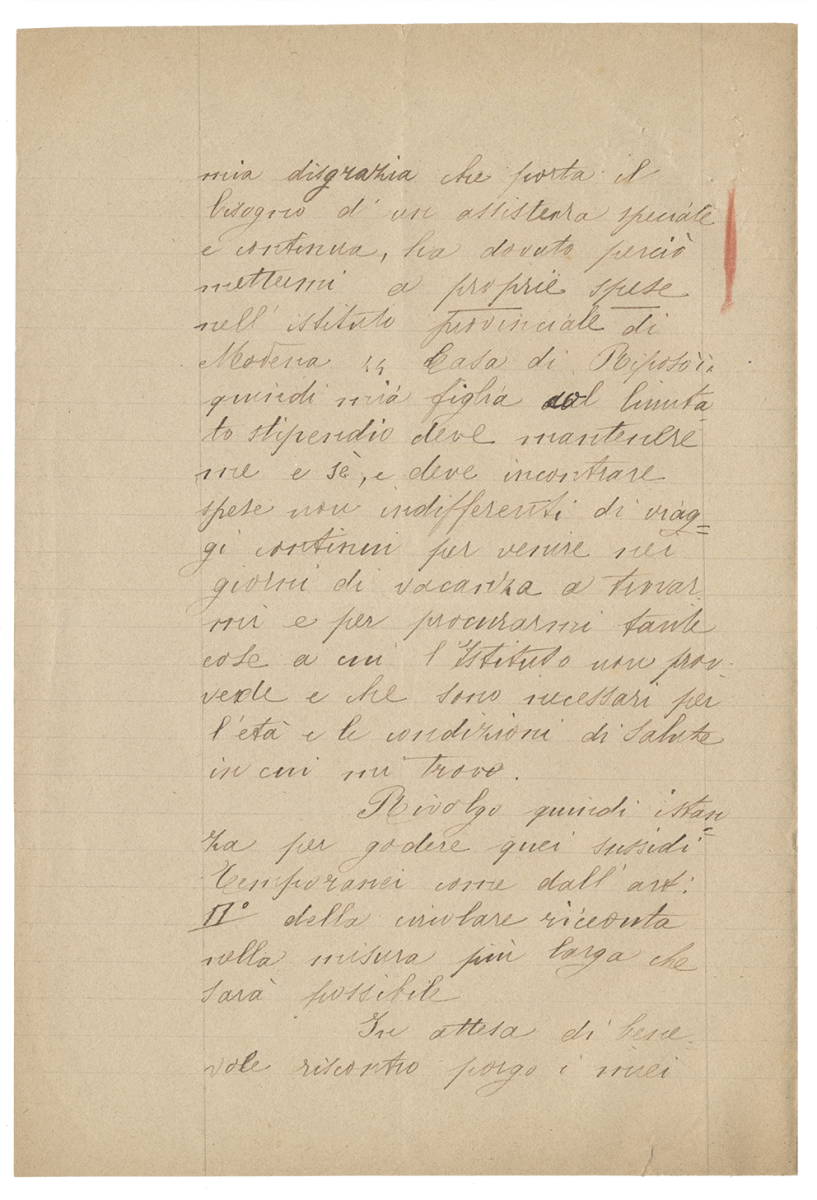 mia disgrazia che porta il
bisogno d' un assistenza speciale
e continua, ha dovuto perciò
mettermi a proprie spese
nell' istituto provinciale di
Modena " Casa di Riposo",
quindi mia figlia col limita-
to stipendio deve mantenere
me e sè, e deve incontrare
spese non indifferenti di viag=
gi continui per venire nei
giorni di vacanza a trovar
mi e per procurarmi tante
cose a cui l'Istituto non prov-
vede e che sono necessari per
l'età e le condizioni di salute
in cui mi trovo.
Rivolgo quindi istan=
za per godere quei sussidi
temporanei come dall' art:
II° della circolare ricevuta
nella misura più larga che
sarà possibile
In attesa di bene-
vole riscontro porgo i miei